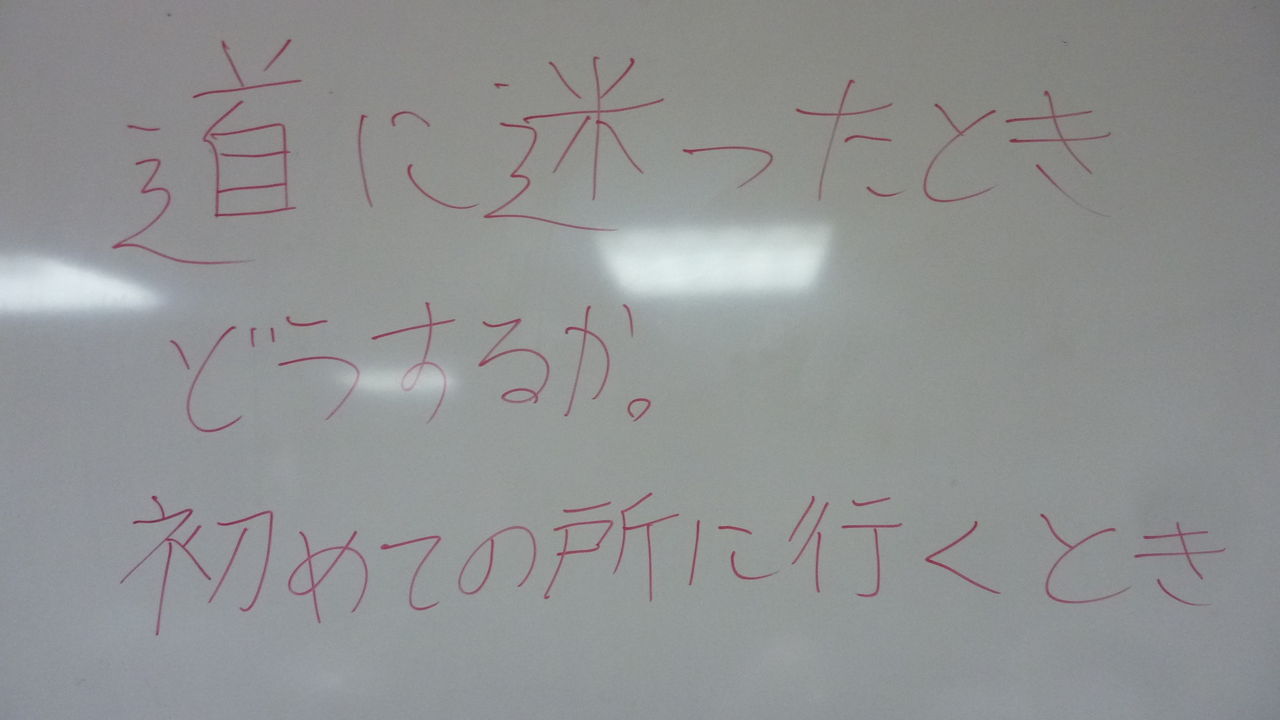 道に迷ったとき
どうするか。
初めての所に行くとき